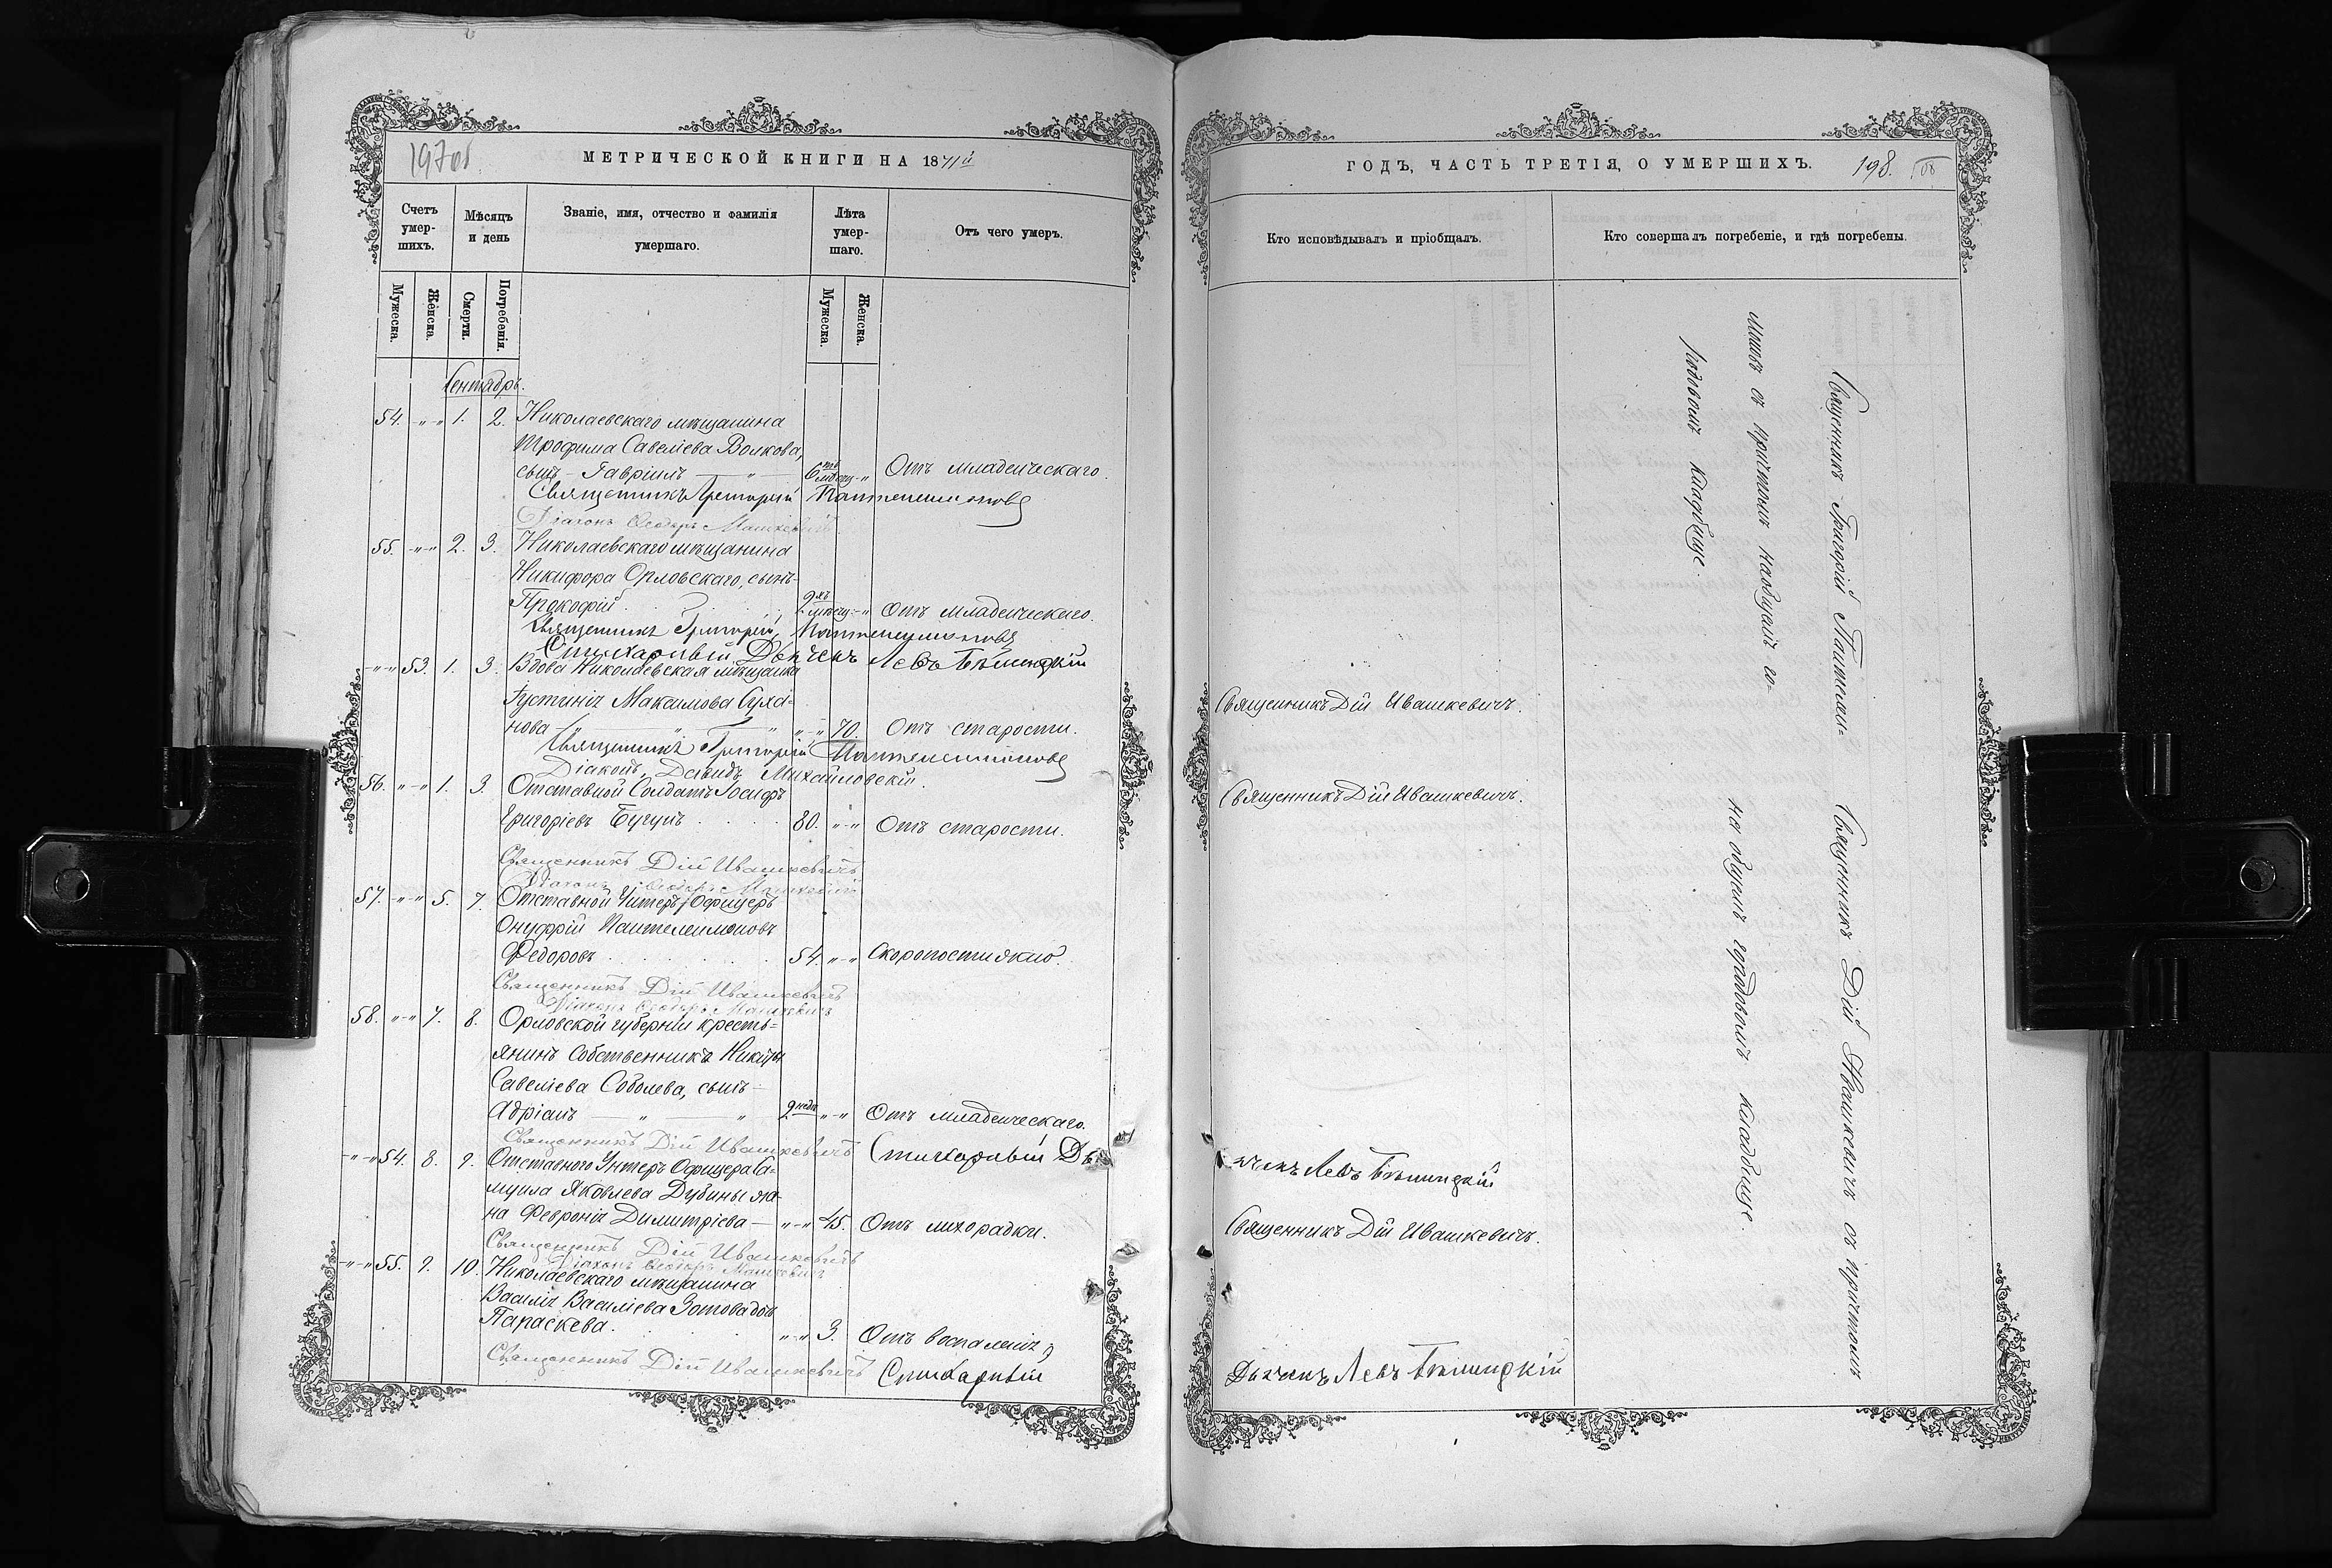 197об.
МЕТРИЧЕСКОЙ КНИГИ НА 1871й
Счетъ умер-шихъ.
Мѣсяцъ и день
Званіе, имя, отчество и фамилія умершаго.
Лѣта умер-шаго.
Отъ чего умеръ.
Мужеска.
Женска.
Смерти.
Погребенія.
Мужеска.
Женска.
Сентябрь.
54. 1. 2. Николаевскаго мѣщанина
Трофима Савеліева Волкова,
сынъ - Гавріилъ 6ть мѣсяц. Отъ младенческаго.
Священникъ Григорій Пантелеимоновъ
Діаконъ Ѳеодоръ Машкевичъ
55. 2. 3. Николаевскаго мѣщанина
Никифора Орловскаго, сынъ-
Прокофій 2хъ мѣсяц. Отъ младенческаго.
Священникъ Григорій Пантелеимоновъ
Стихарный Дьячекъ Левъ Бѣлицкій
53. 1. 3. Вдова Николаевская мѣщанка
Іустинія Максимова Суха-
нова 70. Отъ старости.
Священникъ Григорій Пантелеимоновъ
Діаконъ Давидъ Михайловскій.
56. 1. 3. Отставной Солдатъ Іосифъ
Григоріевъ Бугунъ 80. Отъ старости.
Священникъ Дій Ивашкевичъ
Діаконъ Ѳеодоръ Машкевичъ
57. 5. 7. Отставной Унтеръ Офицеръ
Онуфрій Пантелеимоновъ
Федоровъ 54. Скоропостижно.
Священникъ Дій Ивашкевичъ
Діаконъ Ѳеодоръ Машкевичъ
58. 7. 8. Орловской губерніи кресть-
янинъ Собственникъ Никиты
Савеліева Соболева, сынъ-
Адріанъ 2 недѣл. Отъ младенческаго.
Священникъ Дій Ивашкевичъ Стихарный Дь
54. 8. 9. Отставнаго Унтеръ Офицера Са-
муила Яковлева Дубины же-
на Февронія Димитріева 45. Отъ лихорадки.
Священникъ Дій Ивашкевичъ
Діаконъ Ѳеодоръ Машкевичъ
55. 9. 10. Николаевскаго мѣщанина
Василія Василіева Зотова дочь
Параскева. 3. Отъ воспаленія
Священникъ Дій Ивашкевичъ Стихарный
ГОДЪ, ЧАСТЬ ТРЕТІЯ, О УМЕРШИХЪ.
198.
Кто исповѣдывалъ и пріобщалъ.
Кто совершалъ погребеніе, и гдѣ погребены.
Священникъ Дій Ивашкевичъ.
Священникъ Дій Ивашкевичъ.
ячекъ Левъ Бѣлицкій
Священникъ Дій Ивашкевичъ.
Дьячекъ Левъ Бѣлицкій
Священникъ Григорій Пантелеи-
моновъ съ причтомъ на общемъ го-
родовомъ кладбище.
Священникъ Дій Ивашкевичъ съ причтомъ
на общемъ градовомъ кладбище.